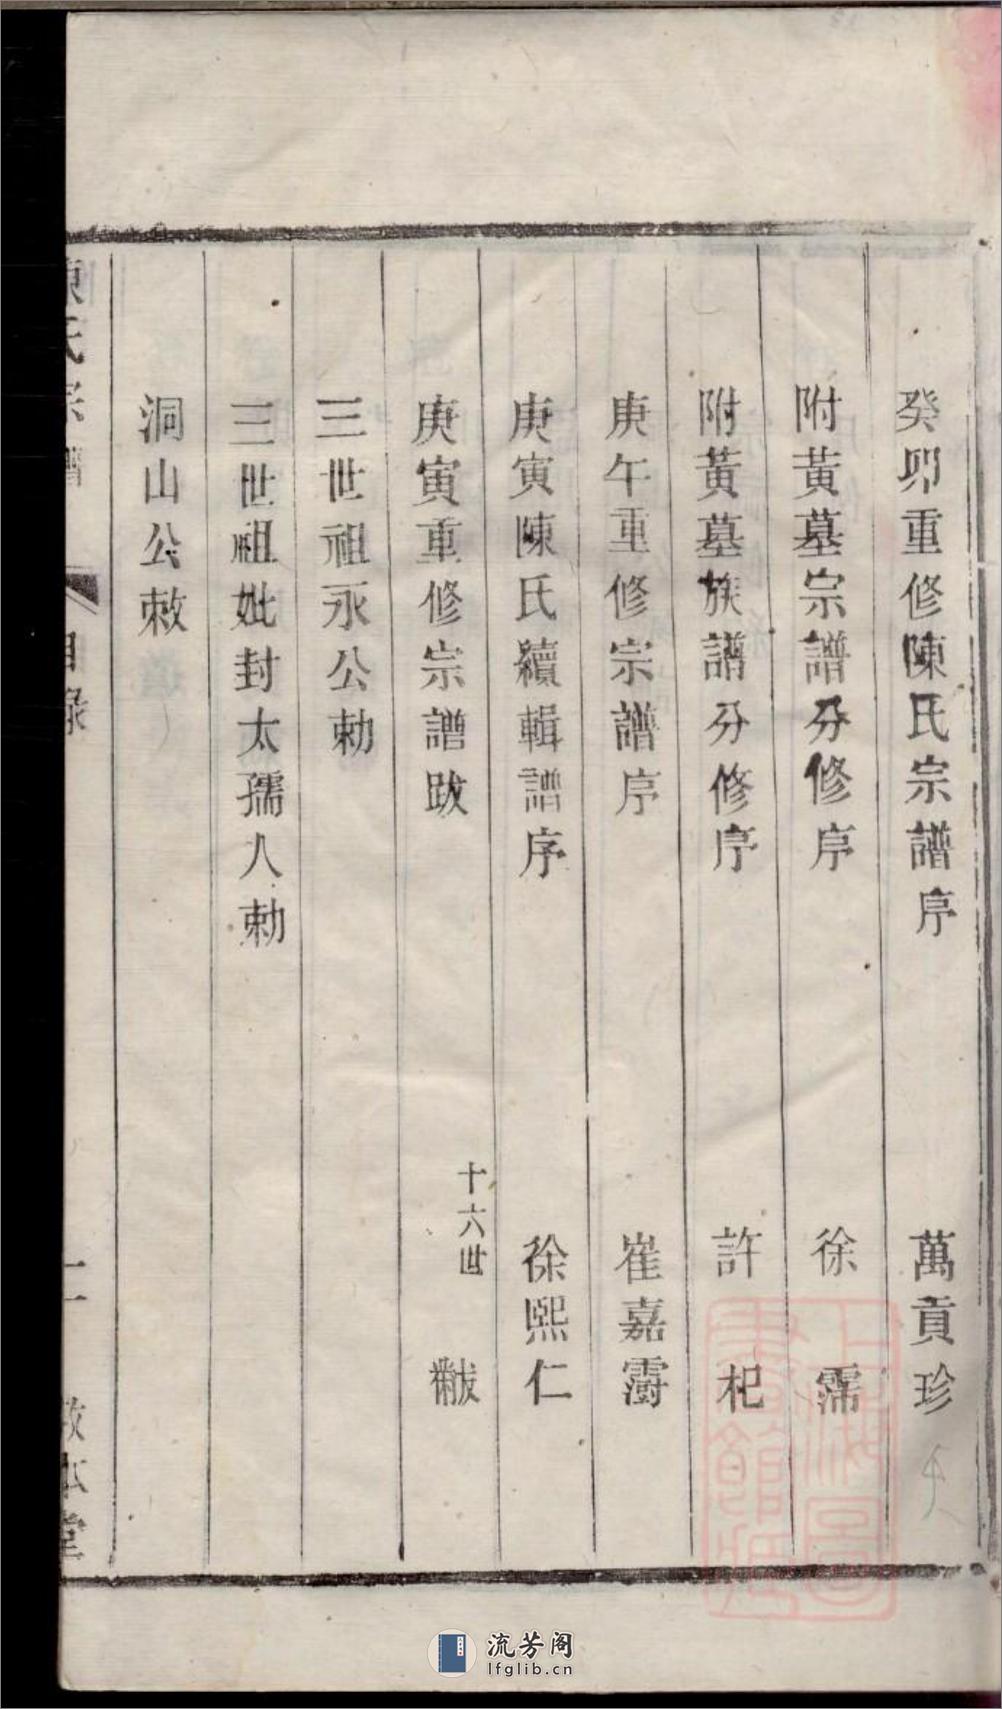 癸卯重修陳氏宗譜序 萬貢珍
附黃墓宗譜分修序 徐霈
附黃墓族譜分修序 許杞
庚午重修宗譜序 崔嘉霨
庚寅陳氏續輯譜序 徐熙仁
庚寅重修宗譜跋 十六世 黻
三世祖永公勅
三世祖妣封太孺人勅
洞山公敕
陳氏宗譜 目錄 二 敦本堂
上海圖書館藏
流芳阁
lfglib.cn